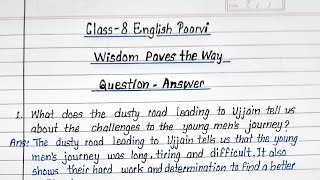 Class-8 English Poorvi
Wisdom Paves the Way
Question - Answer
1. What does the dusty road leading to Ujjain tell us
about the challenges to the young men's journey?
Ans: The dusty road leading to Ujjain tells us that the young
men's journey was long, tiring and difficult. It also
shows their hard work and determination to find a better